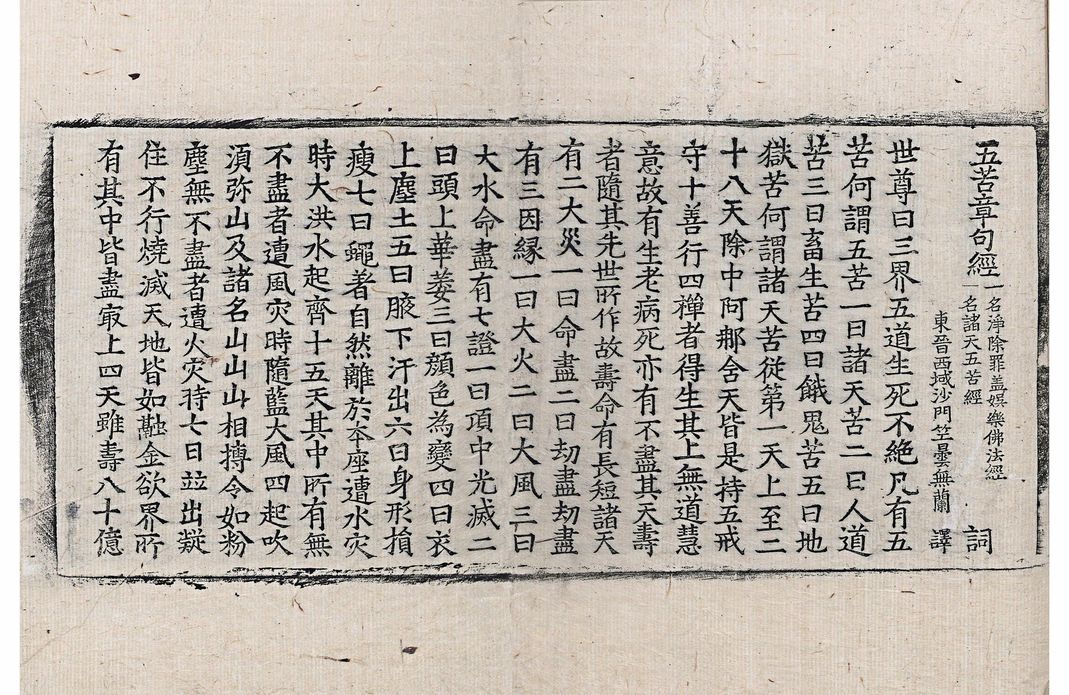 五苦章句經 一名淨除罪盖娯樂佛法經 詞
一名諸天五苦經
東晉西域沙門竺曇無蘭 譯
世尊曰三界五道生死不絶凡有五
苦何謂五苦一曰諸天苦二曰人道
苦三曰畜生苦四曰餓鬼苦五曰地
獄苦何謂諸天苦從第一天上至二
十八天除中阿那舍天皆是持五戒
守十善行四禪者得生其上無道慧
意故有生老病死亦有不盡其天壽
者隨其先世所作故壽命有長短諸天
有二大災一曰命盡二曰劫盡劫盡
有三因縁一曰大火二曰大風三曰
大水命盡有七證一曰項中光滅二
曰頭上華萎三曰顔色為變四曰衣
上塵土五曰腋下汗出六曰身形損
瘦七曰蠅著自然離於夲座遭水灾
時大洪水起齊十五天其中所有無
不盡者遭風灾時隨藍大風四起吹
湏弥山及諸名山山山相摶令如粉
塵無不盡者遭火灾時七日並出凝
住不行燒滅天地皆如融金欲界所
有其中皆盡冣上四天雖壽八十億